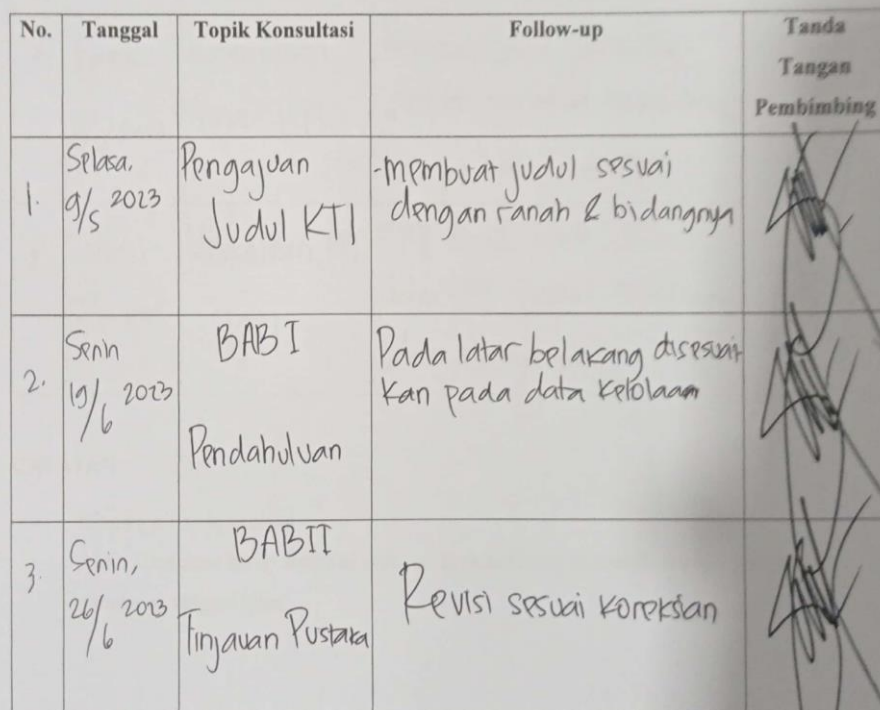 No. Tanggal Topik Konsultasi Follow-up Tanda
Tangan
Pembimbing
1. Selasa, 9/5 2023
Pengajuan
Judul KTI
-membuat judul sesuai
dengan ranah & bidangnya
2. Senin
19/6 2023
BAB I
Pendahuluan
Pada latar belakang disesuai
kan pada data kelolaan
3. Senin,
26/6 2023
BAB II
Tinjauan Pustaka
Revisi sesuai koreksian